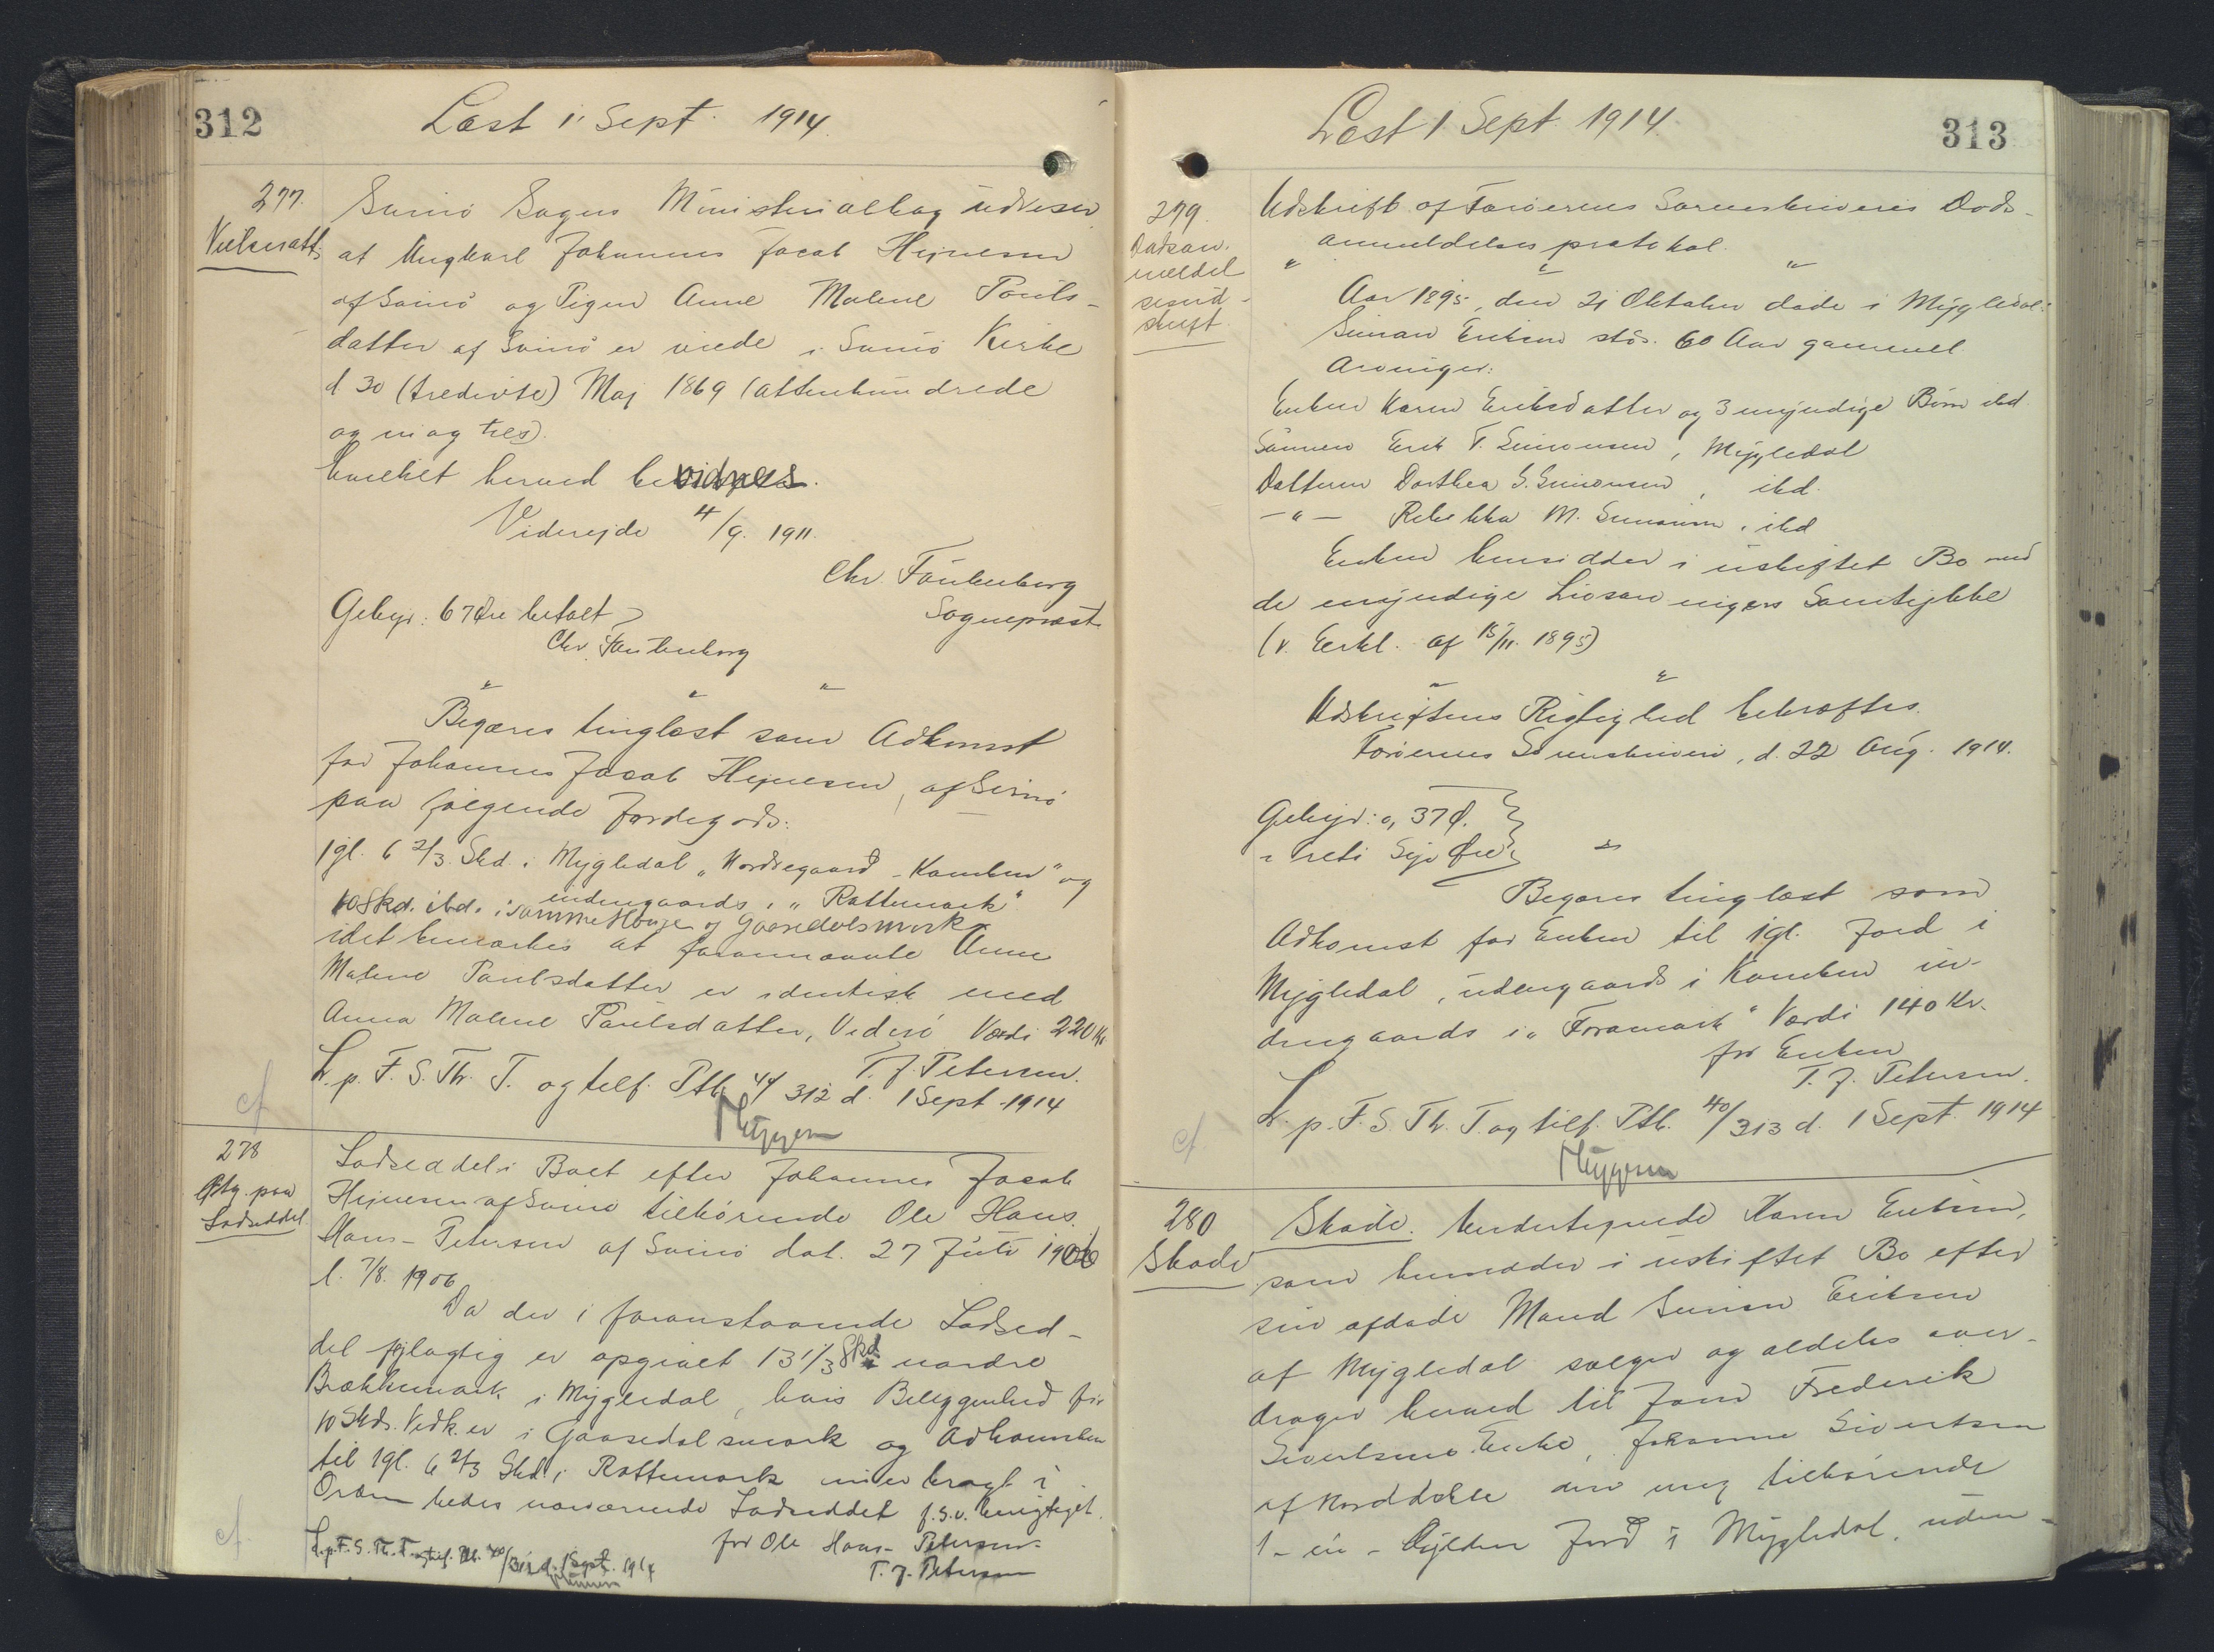 312
Læst 1' Sept. 1914.
277.
Vielsesatt.
Svinö Sogns Ministerialbog udviser
at Ungkarl Johannes Jacob Hejnesen
af Svinö og Pigen Anne Malene Pouls-
datter af Svinö er viede i Svinö Kirke
d 30 (tredivte) Maj 1869 (attenhundrede
og ni og tres).
hvilket herved bevidnes.
Viderejde 4/9. 1911.
Chr. Fäulenborg
Sognepræst
Gebyr: 67 Øre betalt
Chr. Fäulenborg
" " "
Begæres tinglæst som Adkomst
for Johannes Jacob Hejnesen, af Svinö
paa følgende Jordegods:
1 gl. 6 2/3 Skd. i Mygledal "Nordregaard - Kamben" og
indengaards i "Rattemark"
10 Skd. ibd. i samme Hauge og Gaasedalsmark
idet bemærkes at fornævnte Anne
Malene Poulsdatter er identisk med
Anna Malene Poulsdatter, Viderö Værdi 220 Kr.
T. J. Petersen.
L. p. F. S. Th. T. og telf. Ptk. 44/312 d. 1 Sept. 1914
cf
278
Påtg. paa
Lodseddel
Lodseddel i Boet efter Johannes Jacob
Hejnesen af Svinö tilhørende Ole Hans
Hans-Petersen af Svinö dat. 27 Juli 1906
l. 7/8. 1906
Da der i foranstaaende Lodsed-
del fejlagtig er opgivet 13 1/3 Skd i nordre
Brækkemark i Mygledal, hvis Beliggenhed for
10 Skds. Vedk. er i Gaasedalsmark og Adkomsten
til 1 gl. 6 2/3 Skd i Rattemark nu er bragt i
Orden bedes nærværende Lodseddel f. s. v. berigtiget.
for Ole Hans-Petersen
T. J. Petersen
L. p. F. S. Th. T. og telf. Ptk. 40/312 d. 1 Sept. 1914
cf.
Læst 1. Sept. 1914.
313
279.
Dødsan-
meldel
sesud-
skrift
Udskrift af Færøernes Sorenskriveris Døds-
anmeldelsesprotokol.
" " "
Aar 1895, den 21 Oktober døde i Mygledal:
Simon Eriksen står. 60 Aar gammel.
Arvinger:
Enken Karen Eriksdatter og 3 myndige Børn ibd.
Sønnen Erik T. Simonsen, Mygledal
Datteren Dorthea S. Simonsen, ibd.
-"- Rebekka M. Simonsen, ibd
Enken hensidder i uskiftet Bo med
de myndige Livsarvingers Samtykke
(v. Erkl. af 15/11. 1895)
" "
Udskriftens Rigtighed bekræftes.
Færøernes Sorenskriveri, d. 22 Aug. 1914.
Gebyr: 0,37 Ø.
Treti Syv Øre
Begæres tinglæst som
Adkomst for Enken til 1 gl. Jord i
Mygledal, udengaards i Kamben in-
dengaards i "Foramark" Værdi 140 Kr.
for Enken
T. J. Petersen.
L. p. F. S. Th. T. og telf. Ptk. 40/313 d. 1 Sept. 1914
cf
280
Skøde
Skøde. Undertegnede Karen Eriksen,
som hensidder i uskiftet Bo efter
sin afdøde Mand Simon Eriksen
af Mygledal sælger og aldeles over-
drager herved til Joen Frederik
Sivertsens Enke, Johanne Sivertsen
af Norddeble den mig tilhørende
1 - en - Gylden Jord i Mygledal, uden-